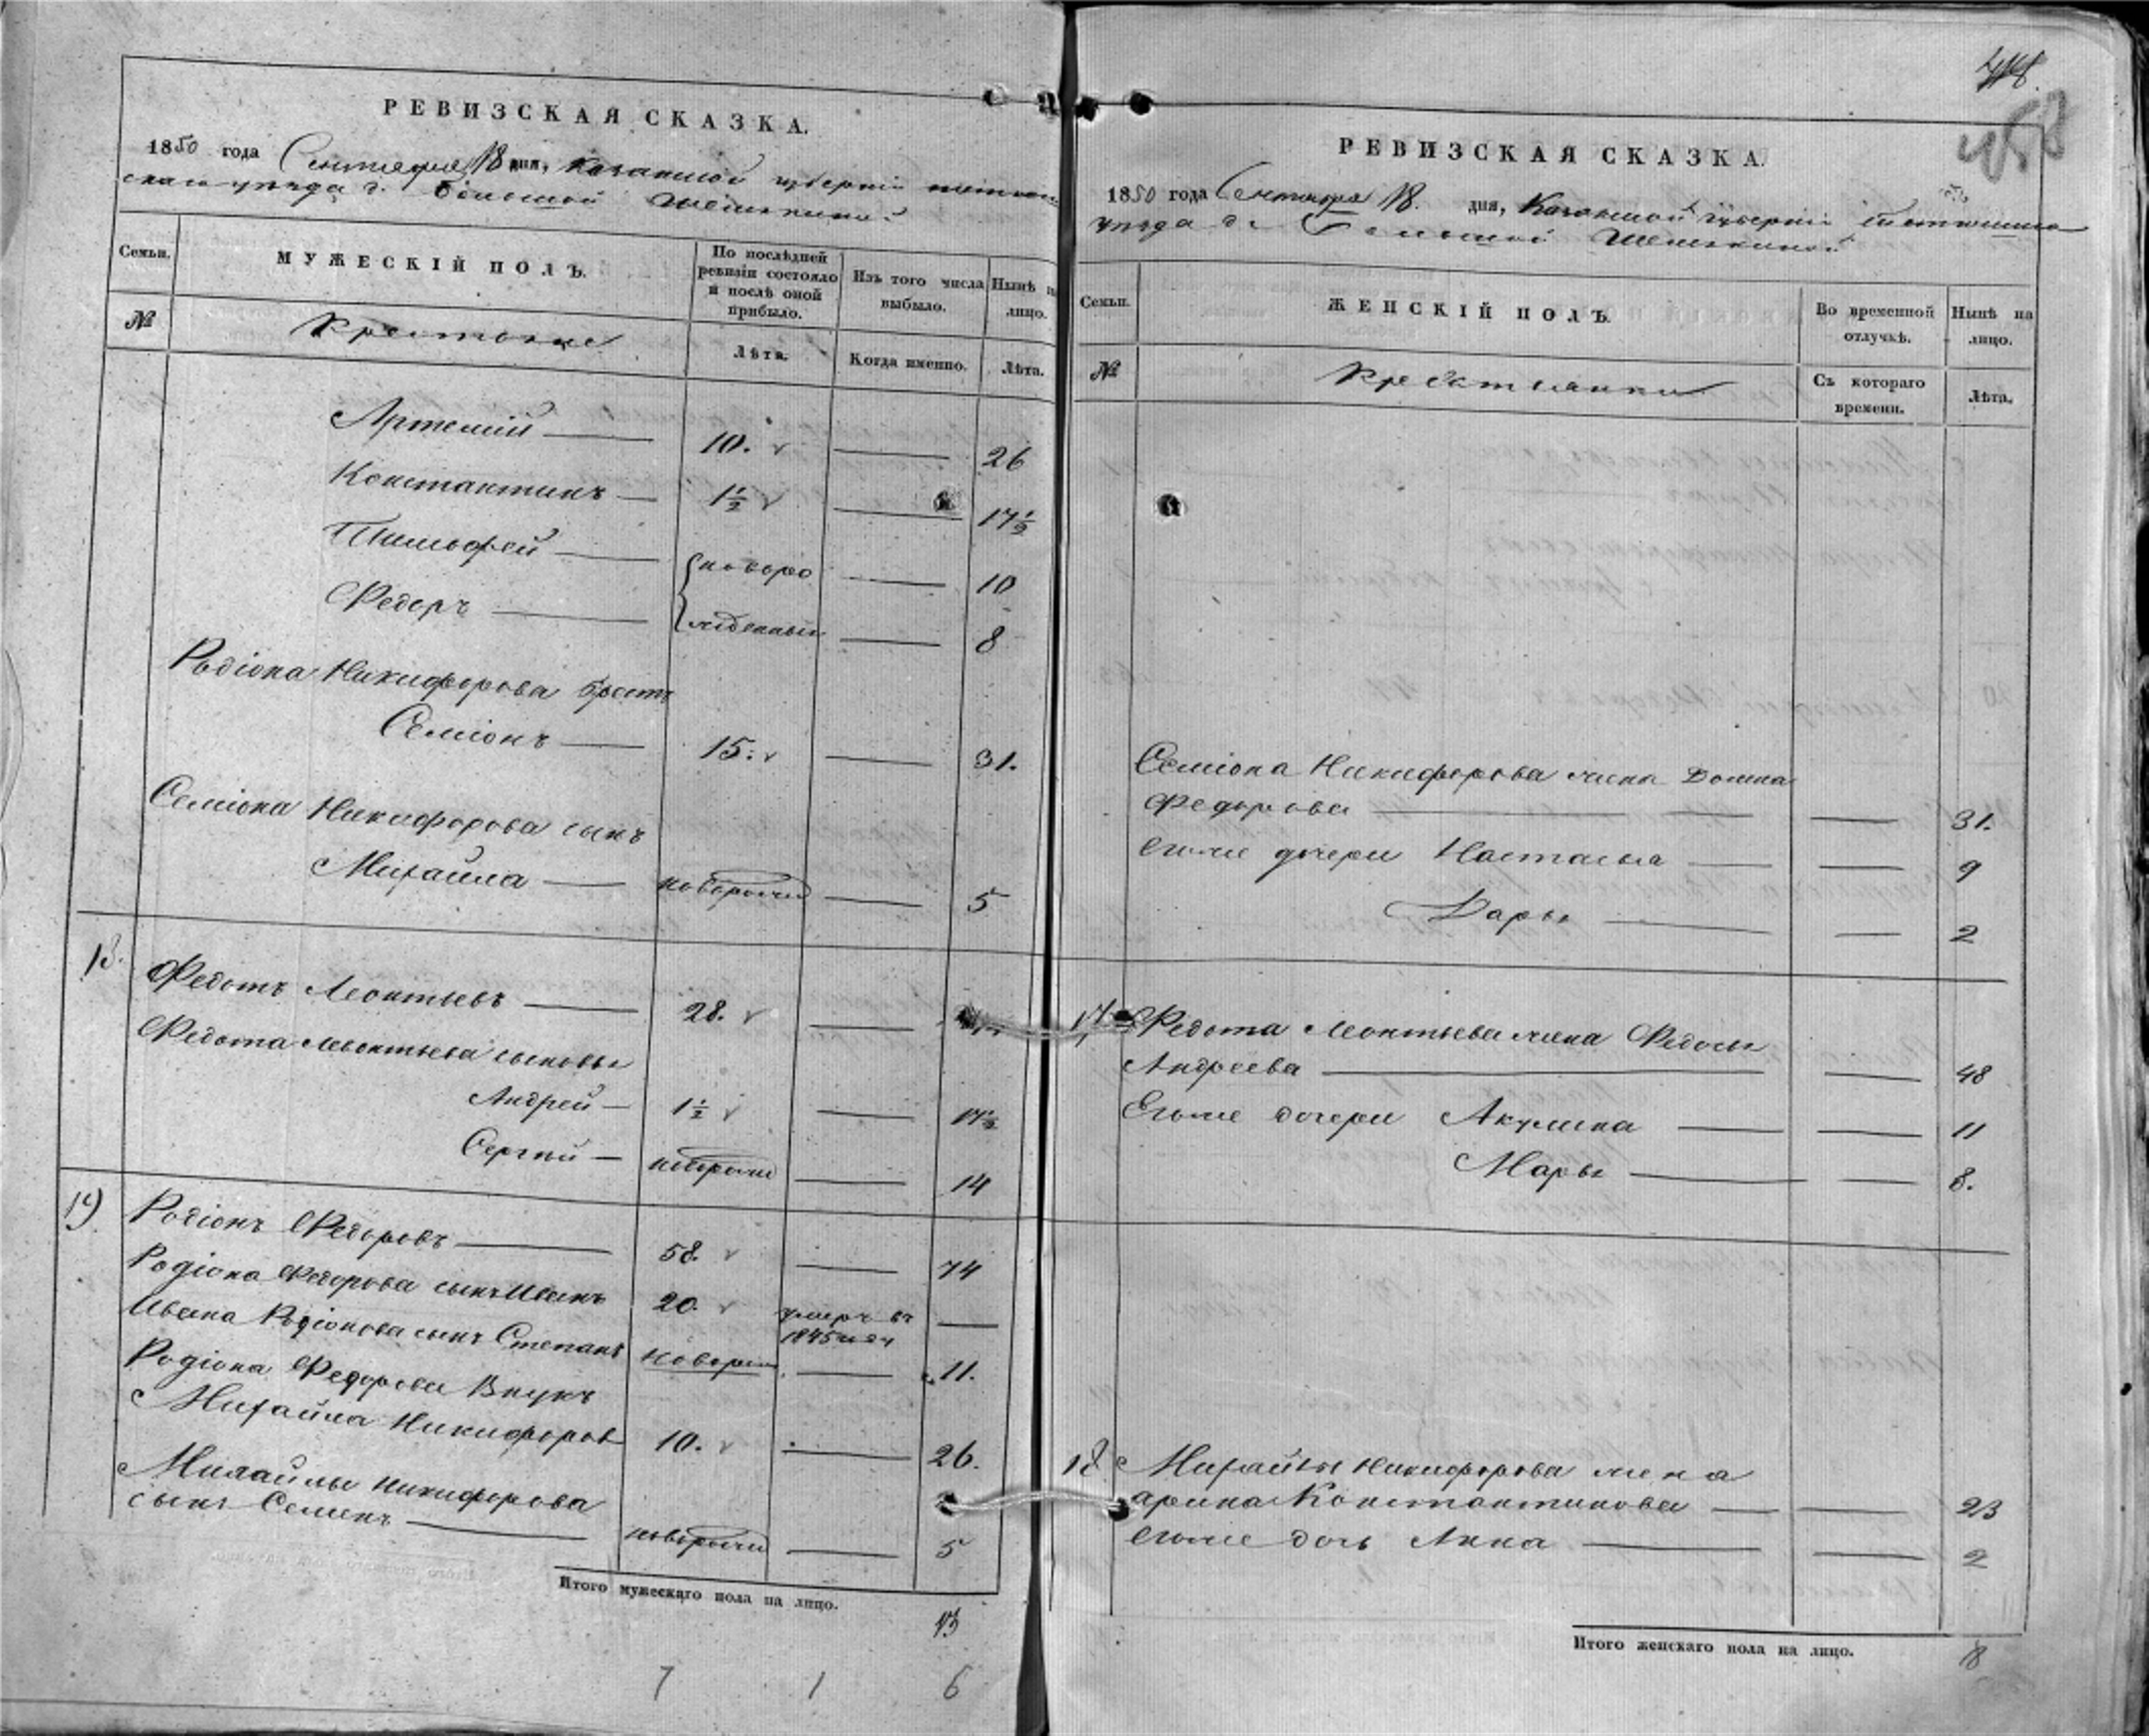 РЕВИЗСКАЯ СКАЗКА.
1850 года Сентября 18 дня, Казанской губернии
уѣзда д. Большой Шемякиной
Семьи. МУЖЕСКІЙ ПОЛЪ. По послѣдней ревизіи состояло и послѣ оной прибыло. Изъ того числа выбыло. Нынѣ на лицо.
№ Крестьяне Лѣта. Когда именно. Лѣта.
Артемій 10. 26
Константинъ 1½ 17½
Тимофей новоро 10
Федоръ жденный 8
Родіона Никифорова братъ
Семіонъ 15. 31.
Семіона Никифорова сынъ
Михайла новорожд 5
18. Федотъ Леонтьевъ 28.
Федота Леонтьева сыновья
Андрей 1½ 17½
Сергѣй новорожд 14
19. Родіонъ Федоровъ 58. 74
Родіона Федорова сынъ Иванъ 20. умеръ въ 1845
Ивана Родіонова сынъ Степанъ новорож 11.
Родіона Федорова Внукъ
Михайла Никифоров 10. 26.
Михайлы Никифорова
сынъ Семенъ новорожд 5
Итого мужескаго пола на лицо. 13
7 1 6
458
РЕВИЗСКАЯ СКАЗКА.
1850 года Сентября 18. дня, Казанской губерніи
уѣзда д. Большой Шемякиной
Семьи. ЖЕНСКІЙ ПОЛЪ. Во временной отлучкѣ. Нынѣ на лицо.
№ Крестьянки Съ котораго времени. Лѣта.
Семіона Никифорова жена Домна
Федорова 31.
Егоже дочери Настасья 9
Дарья 2
17 Федота Леонтьева жена Федосья
Андреева 48
Егоже дочери Акулина 11
Марья 8.
18 Михайлы Никифорова жена
арина Константинова 23
Егоже дочь Анна 2
Итого женскаго пола на лицо. 8